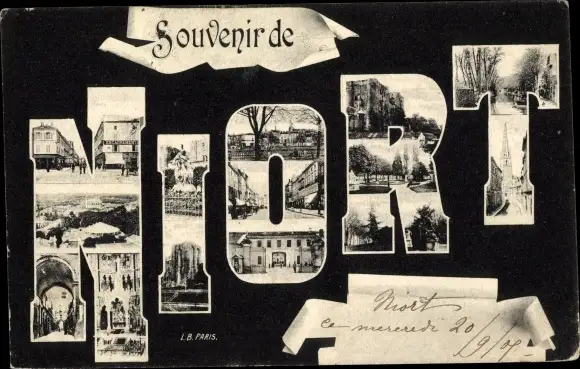 Souvenir de
NIORT
Niort
ce mercredi 20
/9/05
I.B. PARIS.